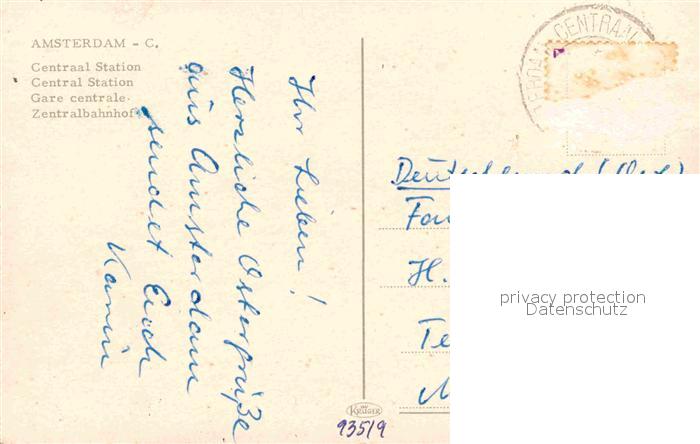 AMSTERDAM - C.
Centraal Station
Central Station
Gare centrale
Zentralbahnhof
Ihr Lieben!
Herzliche Ostergrüße
aus Amsterdam
sendet Euch
Karin
CENTRAAL
Fam
H.
Te
KRÜGER
935/9
privacy protection
Datenschutz